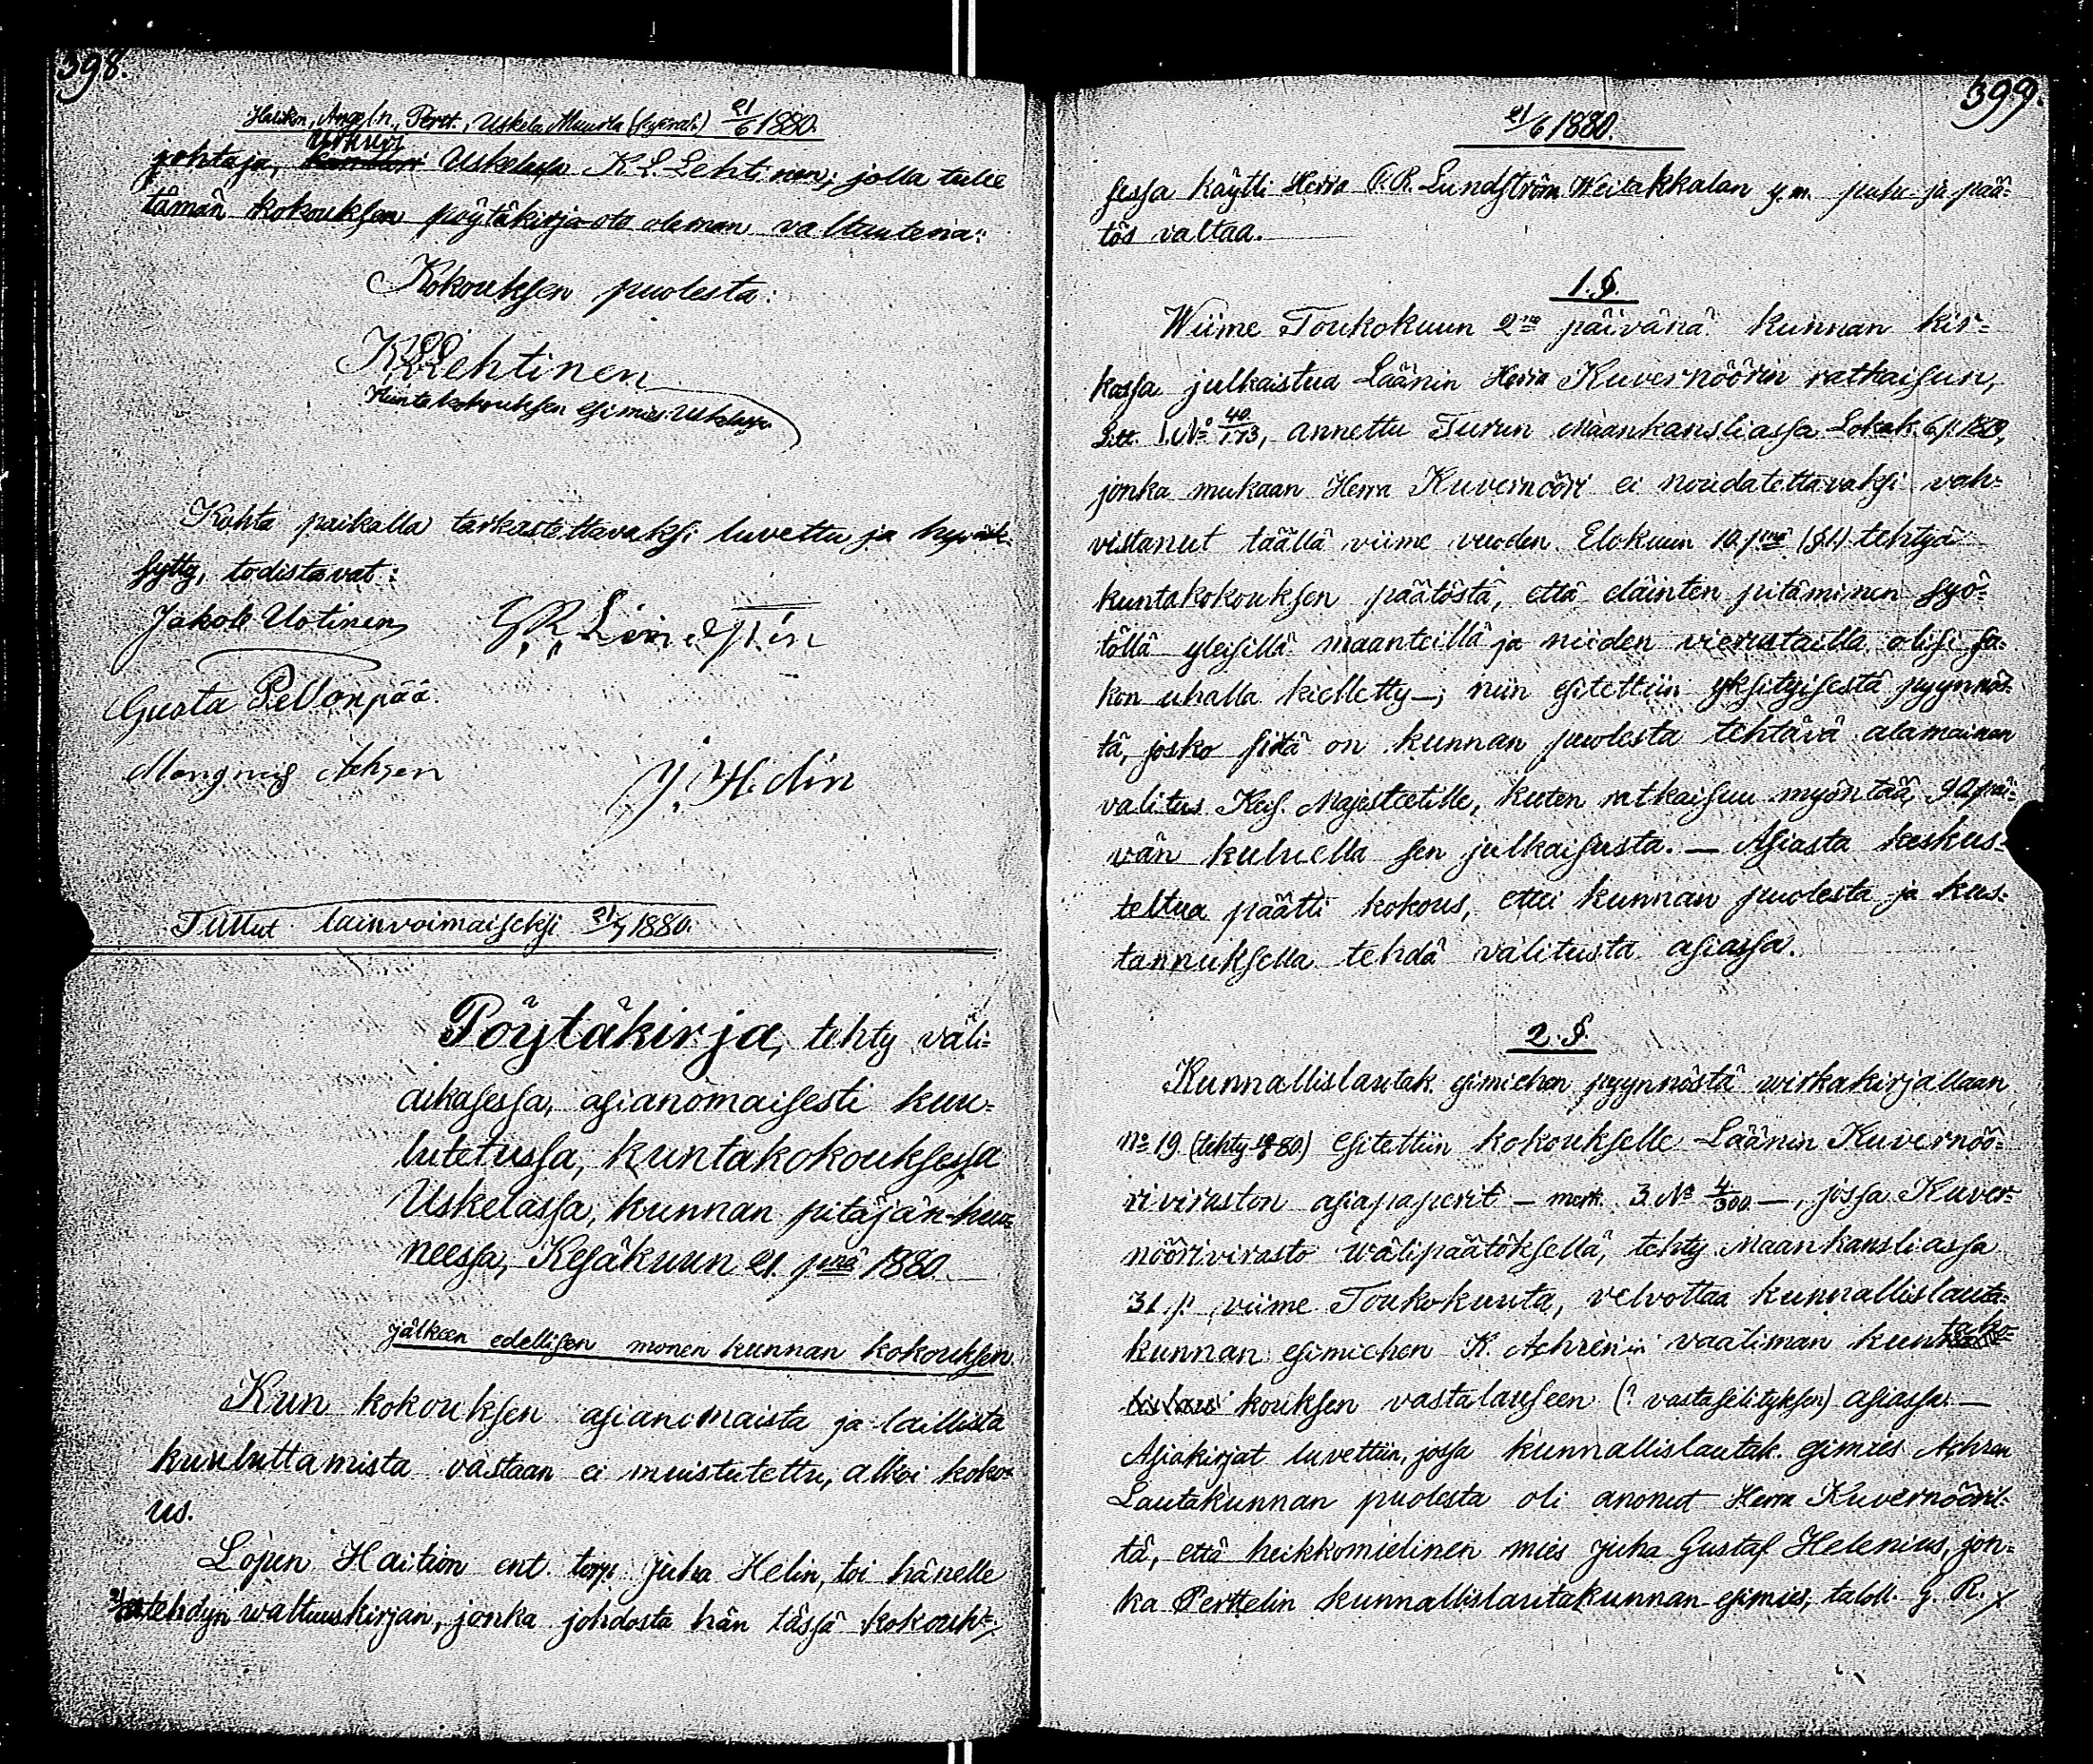 398.
Halikon, Angeln., Pertt., Uskela Muurla 21/6 1880.
johtaja, Urkuri Uskelassa K. L. Lehtinen; jolla tulee
tämän kokouksen pöytäkirja-ote oleman valtuutena:
Kokouksen puolesta:
K L Lehtinen
Kuntakokouksen esimies Uskelassa.
Kohta paikalla tarkastettavaksi luvettu ja hyväk-
sytty, todistavat:
Jakob Uotinen
Gusta Pellonpää.
J. H.
Tullut lainvoimaiseksi 21/7 1880.
Pöytäkirja, tehty väli-
aikasessa, asianomaisesti kuu-
lutetussa, kuntakokouksessa
Uskelassa, kunnan pitäjän-huo-
neessa, Kesäkuun 21. pnä 1880.
jälkeen edellisen monen kunnan kokouksen.
Kun kokouksen asianomaista ja laillista
kuuluttamista vastaan ei muistutettu, alkoi koko-
us.
Lopen Haition ent. torp. Juha Helin, toi hänelle
tehdyn waltuuskirjan, jonka johdosta hän tässä kokouk-
399.
21/6 1880.
sessa käytti Herra C. R. Lundström Weitakkalan y.m. puhe- ja pää-
tös valtaa.
1. §.
Wiime Toukokuun 2na päivänä kunnan kir-
kossa julkaistua Läänin Herra Kuvernöörin ratkaisun,
Litt. I. No 40/173, annettu Turun Maankansliassa Lokak. 6 p. 1879,
jonka mukaan Herra Kuvernööri ei noudatettavaksi vah-
vistanut täällä viime vuoden Elokuun 10. pnä (§ 1) tehtyä
kuntakokouksen päätöstä, että eläinten pitäminen syö-
töllä yleisillä maanteillä ja niiden vierustailla olisi sa-
kon uhalla kielletty —; niin esitettiin yksityisestä pyynnös-
tä, josko siitä on kunnan puolesta tehtävä alamainen
valitus Keis. Majesteetille, kuten ratkaisuu myöntää, 90 päi-
vän kuluella sen julkaisusta. — Asiasta keskus-
teltua päätti kokous, ettei kunnan puolesta ja kus-
tannuksella tehdä valitusta asiassa.
2. §.
Kunnallislautak. esimiehen pyynnöstä wirkakirjallaan
No 19 (tehty 1880) esitettiin kokoukselle Läänin Kuvernöö-
riviraston asiapaperit — merk. 3 No 4/300 —, jossa Kuver-
nöörivirasto wälipäätöksellä, tehty Maankansliassa
31. p. viime Toukokuuta, velvottaa kunnallislauta-
kunnan esimiehen K. Achrenin vaatiman kuntako-
kouksen vastalauseen (? vastaselityksen) asiassa. —
Asiakirjat luvettiin, jossa kunnallislautak. esimies Achren
Lautakunnan puolesta oli anonut Herra Kuvernööril-
tä, että heikkomielinen mies Juha Gustaf Helenius, jon-
ka Perttelin kunnallislautakunnan esimies, taloll. G. R.